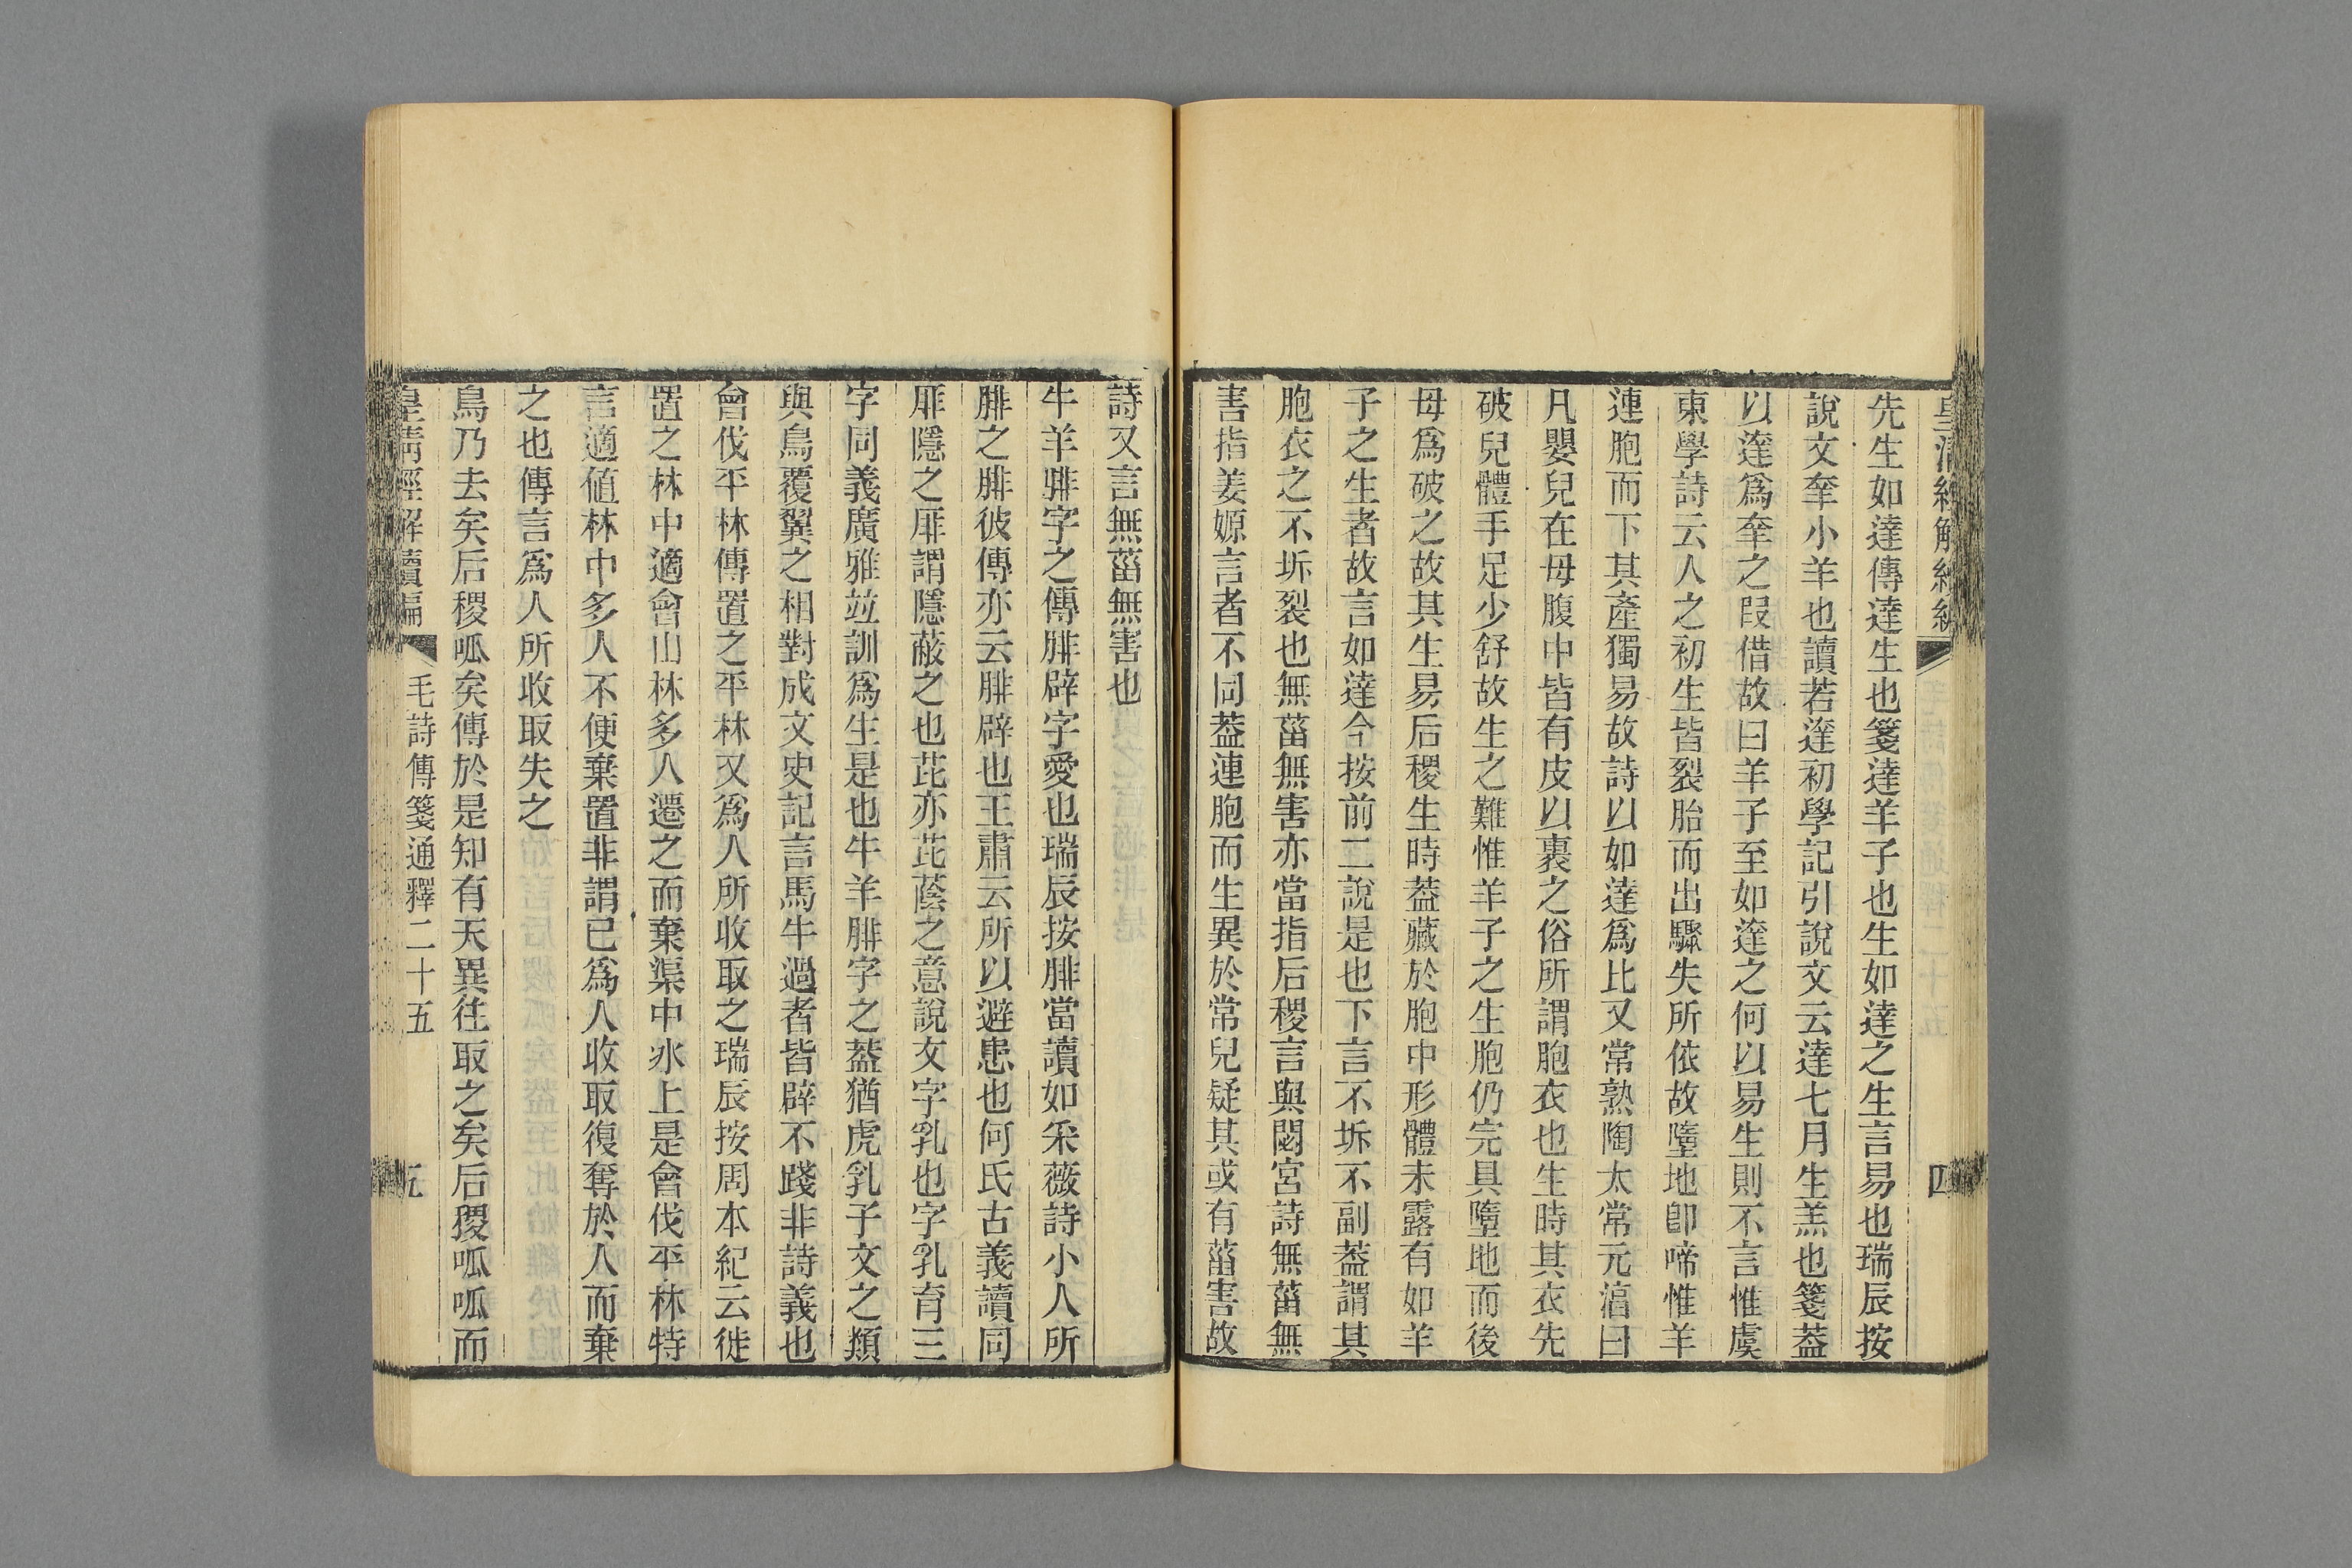 皇清經解續編
四
先生如達傳達生也箋達羊子也生如達之生言易也瑞辰按
說文羍小羊也讀若達初學記引說文云達七月生羔也箋葢
以達爲羍之叚借故曰羊子至如達之何以易生則不言惟虞
東學詩云人之初生皆裂胎而出驟失所依故墮地卽啼惟羊
連胞而下其產獨易故詩以如達爲比又常熟陶太常元淳曰
凡嬰兒在母腹中皆有皮以裹之俗所謂胞衣也生時其衣先
破兒體手足少舒故生之難惟羊子之生胞仍完具墮地而後
母爲破之故其生易后稷生時葢藏於胞中形體未露有如羊
子之生者故言如達今按前二說是也下言不坼不副葢謂其
胞衣之不坼裂也無菑無害亦當指后稷言與閟宮詩無菑無
害指姜嫄言者不同葢連胞而生異於常兒疑其或有菑害故
詩又言無菑無害也
牛羊腓字之傳腓辟字愛也瑞辰按腓當讀如采薇詩小人所
腓之腓彼傳亦云腓辟也王肅云所以避患也何氏古義讀同
厞隱之厞謂隱蔽之也芘亦芘蔭之意說文字乳也字乳育三
字同義廣雅竝訓爲生是也牛羊腓字之葢猶虎乳子文之類
與鳥覆翼之相對成文史記言馬牛過者皆辟不踐非詩義也
會伐平林傳置之平林又爲人所收取之瑞辰按周本紀云徙
置之林中適會山林多人遷之而棄渠中冰上是會伐平林特
言適値林中多人不便棄置非謂已爲人收取復奪於人而棄
之也傳言爲人所收取失之
鳥乃去矣后稷呱矣傳於是知有天異往取之矣后稷呱呱而
皇清經解續編
毛詩傳箋通釋二十五
五